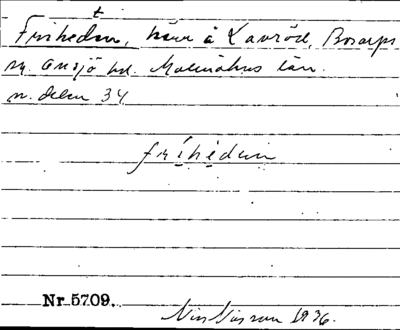 t
Friheden, hem å Lavröd, Bosarps
sn. Onsjö hd. Malmöhus län.
n. delen 34
fríhèden
Nr 5709.
Nils Nilsson 1936.